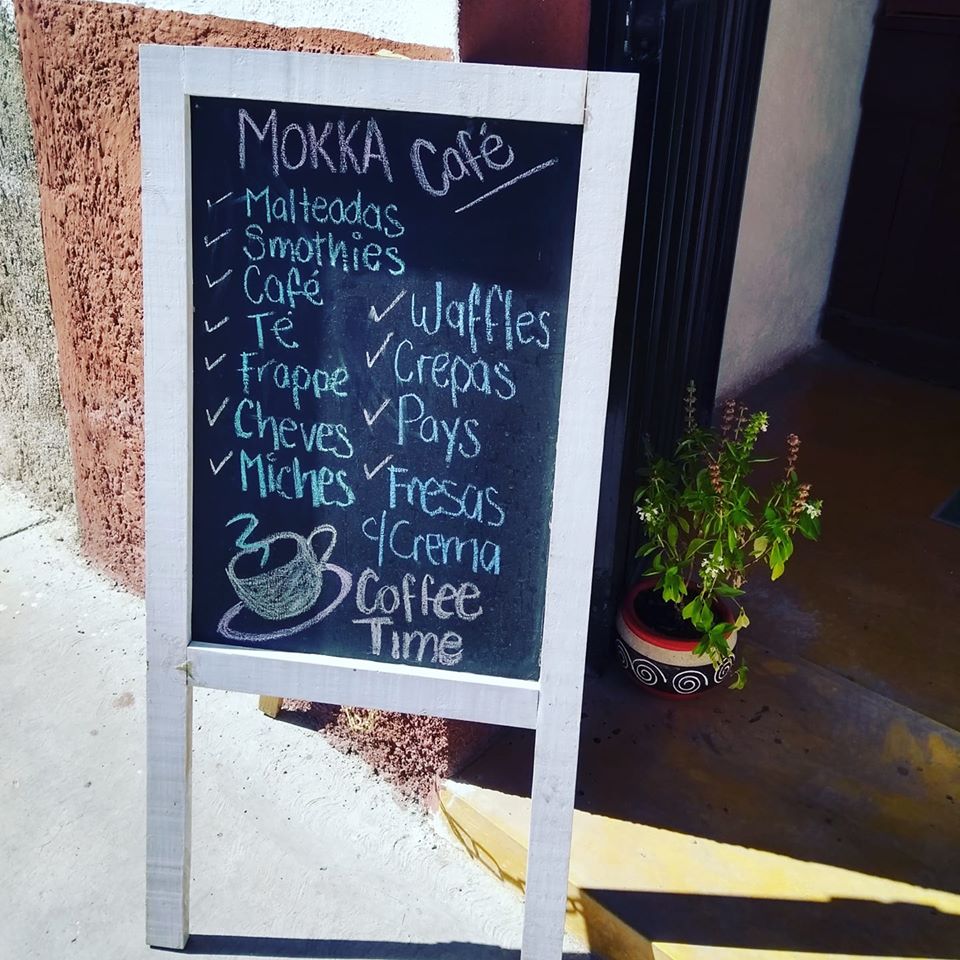 MOKKA Café
✓ Malteadas
✓ Smothies
✓ Café
✓ Té
✓ Frappe
✓ Cheves
✓ Miches
✓ Waffles
✓ Crepas
✓ Pays
✓ Fresas
c/Crema
Coffee
Time